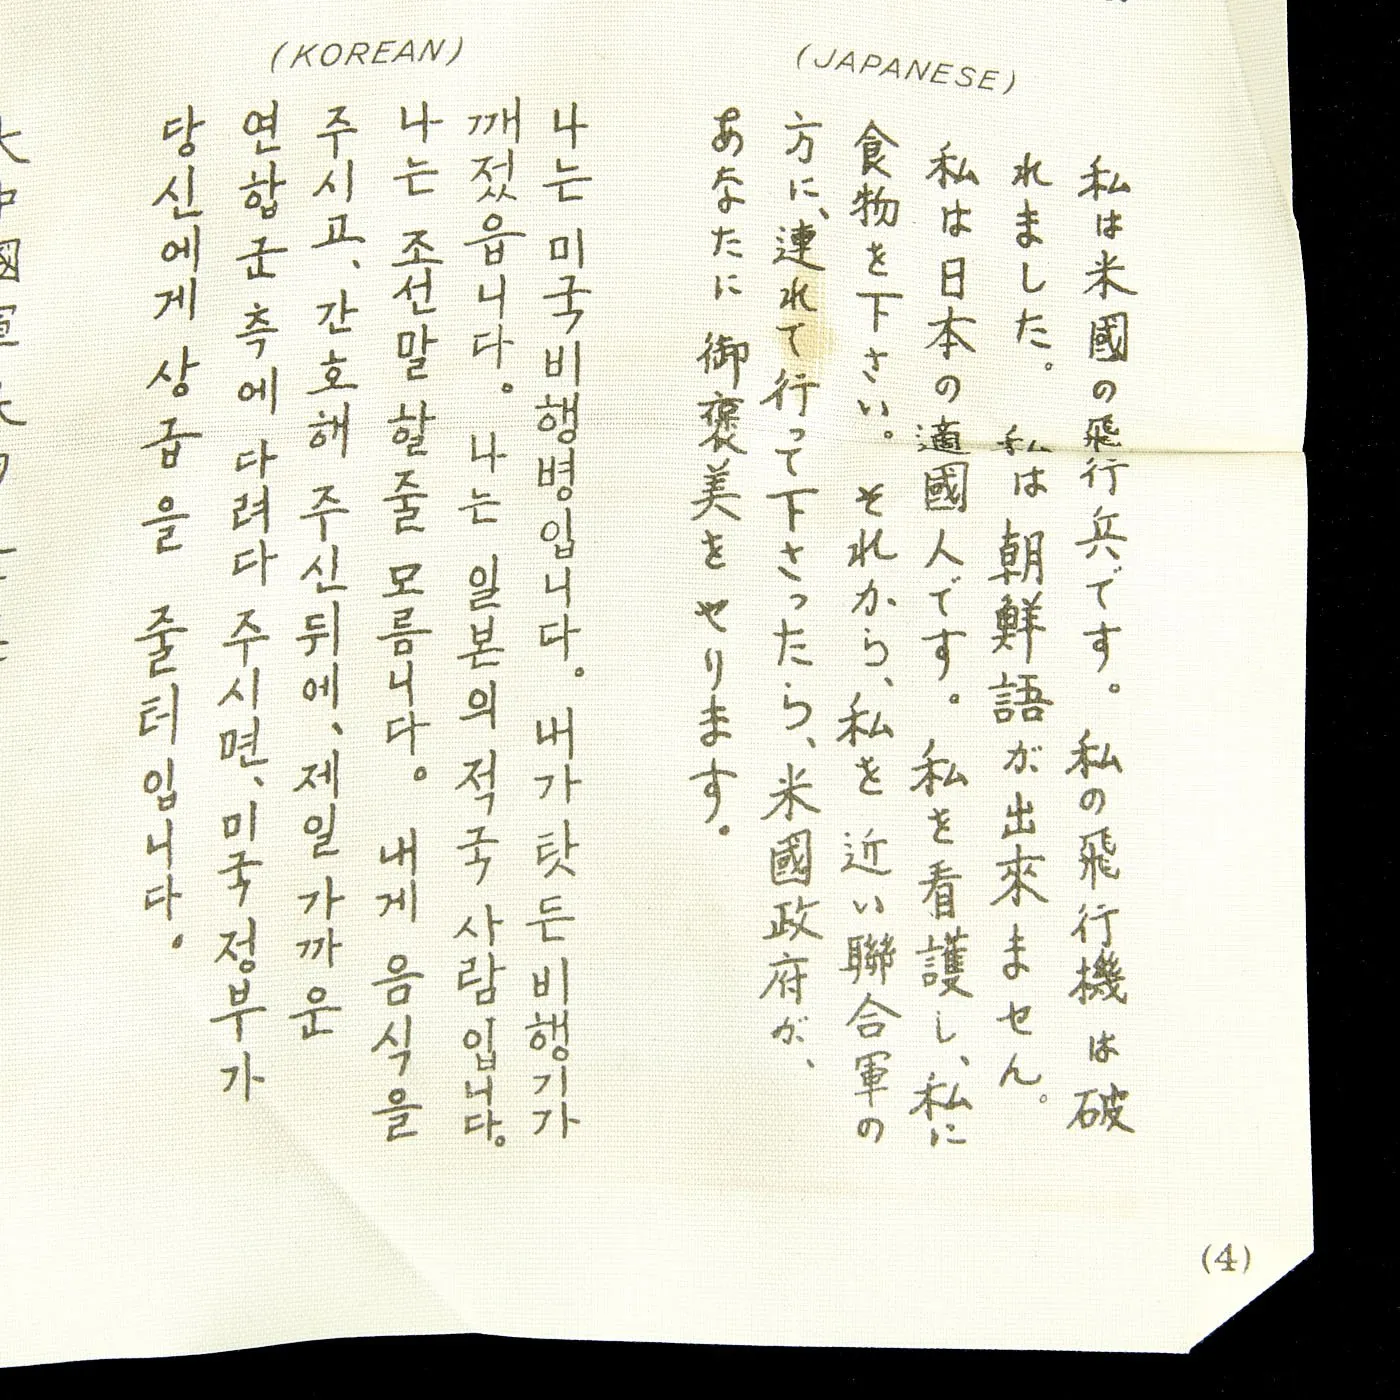 (JAPANESE)
私は米國の飛行兵です。私の飛行機は破
れました。 私は朝鮮語が出來ません。
私は日本の適國人です。私を看護し、私に
食物を下さい。それから、私を近い聯合軍の
方に、連れて行って下さったら、米國政府が、
あなたに御褒美をやります。
(KOREAN)
나는 미국비행병입니다. 내가 탓든 비행기가
깨젔읍니다. 나는 일본의 적국 사람입니다.
나는 조선말 할줄 모름니다. 내게 음식을
주시고, 간호해 주신뒤에, 제일 가까운
연합군측에 다려다 주시면, 미국정부가
당신에게 상금을 줄터입니다.
(4)